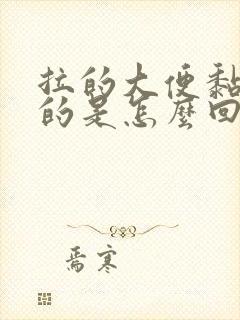 拉的大便黏
的是怎麼回
焉寒